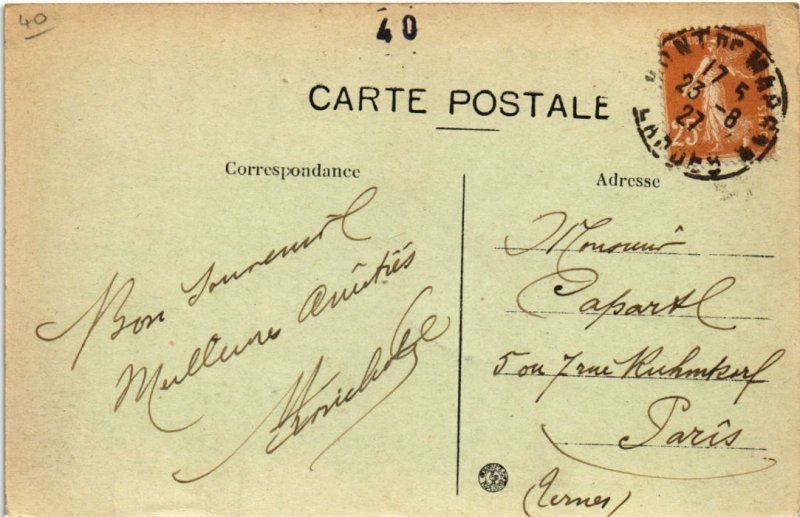 40
40
CARTE POSTALE
MONT DE MARSAN
17 5
23 -8
27
LANDES
25
Correspondance
Adresse
Bon souvenir
Meilleures amitiés
Monsieur
Capart
5 ou 7 rue Ruhmkorf
Paris
(Ternes)